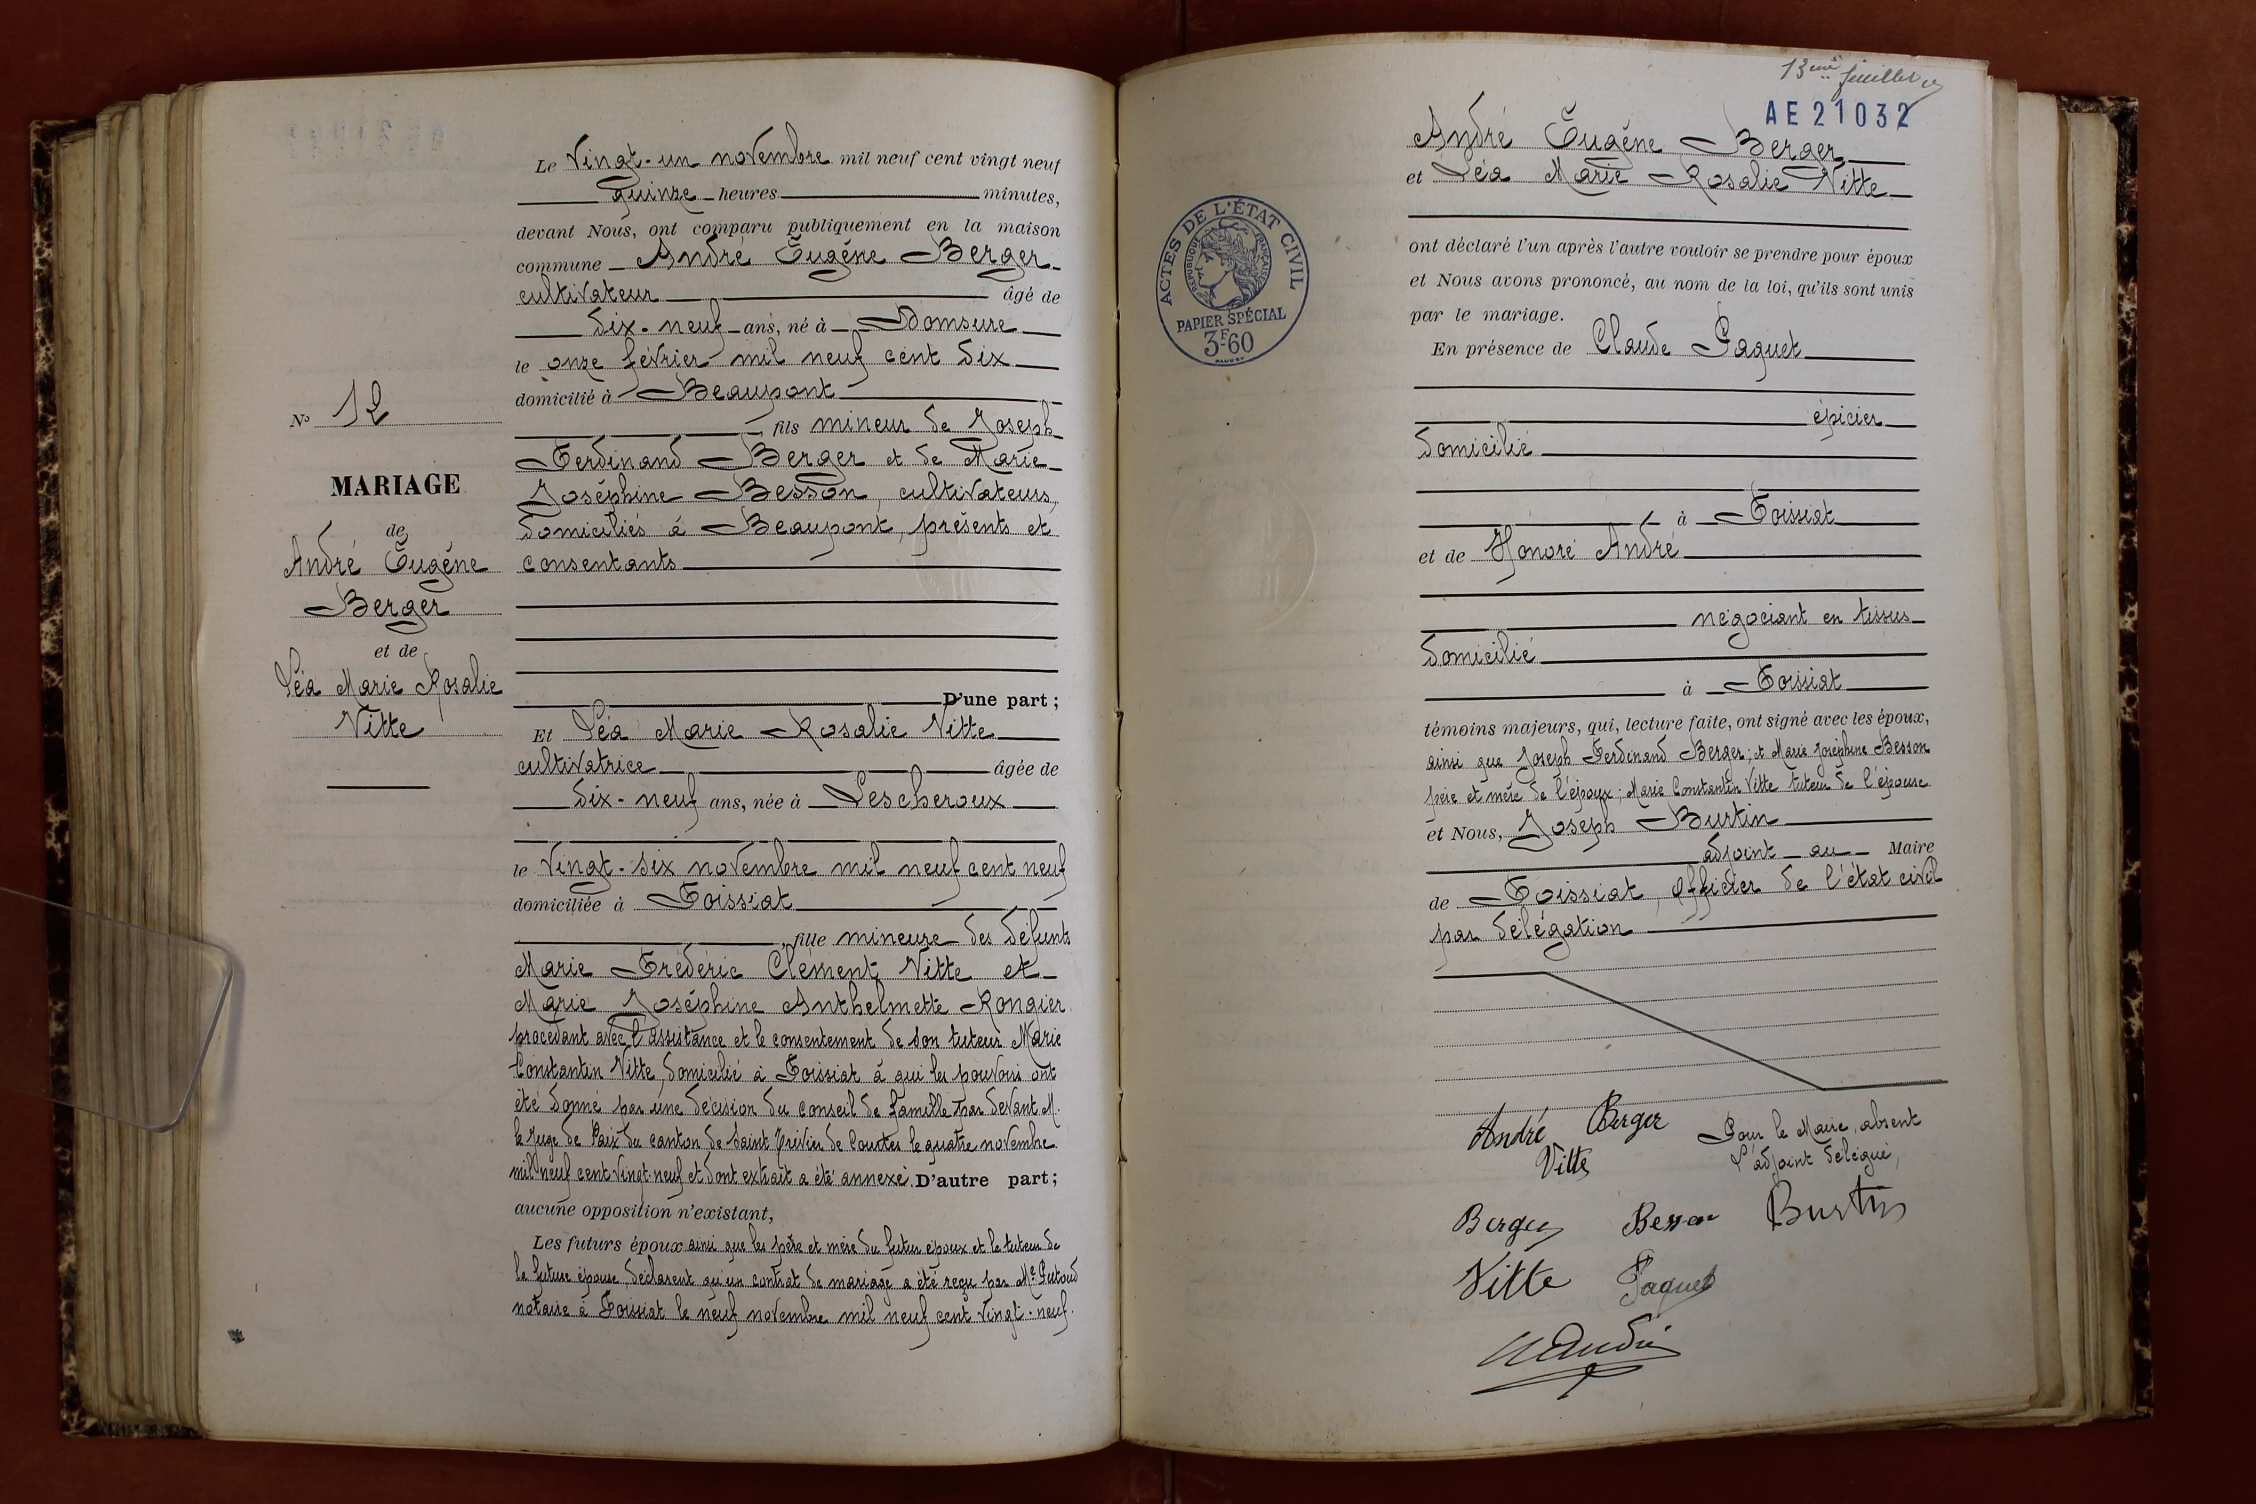 Le Vingt-un novembre mil neuf cent vingt neuf
quinze heures minutes,
devant Nous, ont comparu publiquement en la maison
commune André Eugène Berger
cultivateur âgé de
dix-neuf ans, né à Domsure
le onze février mil neuf cent dix
domicilié à Beaupont
fils mineur de Joseph
Ferdinand Berger et de Marie
Joséphine Besson, cultivateurs,
domiciliés à Beaupont, présents et
consentants
No 12
MARIAGE
de
André Eugène
Berger
et de
Léa Marie Rosalie
Vitte
D'une part;
Et Léa Marie Rosalie Vitte
cultivatrice âgée de
dix-neuf ans, née à Lescheroux
le vingt-six novembre mil neuf cent neuf
domiciliée à Foissiat
, fille mineure des défunts
Marie Frédéric Clément Vitte et
Marie Joséphine Anthelmette Rongier
procédant avec l'assistance et le consentement de son tuteur Marie
Constantin Vitte, domicilié à Foissiat à qui les pouvoirs ont
été donné par une décision du conseil de famille par devant M.
le Juge de Paix du canton de Saint Trivier de Courtes le quatre novembre
mil neuf cent vingt-neuf et dont extrait a été annexé. D'autre part;
aucune opposition n'existant,
Les futurs époux ainsi que les père et mère du futur époux et le tuteur de
la future épouse déclarent qu'un contrat de mariage a été reçu par Me
notaire à Foissiat le neuf novembre mil neuf cent vingt-neuf.
13ème feuillet
AE 21032
André Eugène Berger
et Léa Marie Rosalie Vitte
ACTES DE L'ÉTAT CIVIL
RÉPUBLIQUE FRANÇAISE
PAPIER SPÉCIAL
3F60
ont déclaré l'un après l'autre vouloir se prendre pour époux
et Nous avons prononcé, au nom de la loi, qu'ils sont unis
par le mariage.
En présence de Claude Paquet
épicier
domicilié
à Foissiat
et de Honoré André
négociant en tissus
domicilié
à Foissiat
témoins majeurs, qui, lecture faite, ont signé avec les époux,
ainsi que Joseph Ferdinand Berger; et Marie Joséphine Besson
père et mère de l'époux; Marie Constantin Vitte tuteur de l'épouse
et Nous, Joseph Burtin
adjoint au Maire
de Foissiat, officier de l'état civil
par délégation
André Berger
Vitte
Pour le Maire, absent
L'adjoint délégué,
Berger Besson Burtin
Vitte Paquet
H André